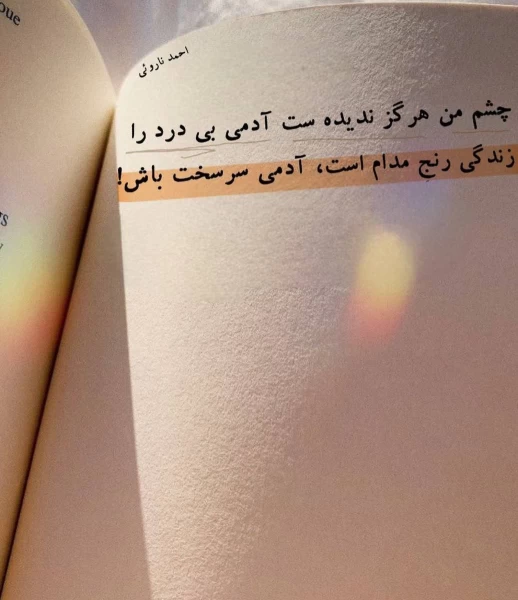 احمد ناروئی
چشم من هرگز ندیده ست آدمی بی درد را
زندگی رنج مدام است، آدمی سرسخت باش!